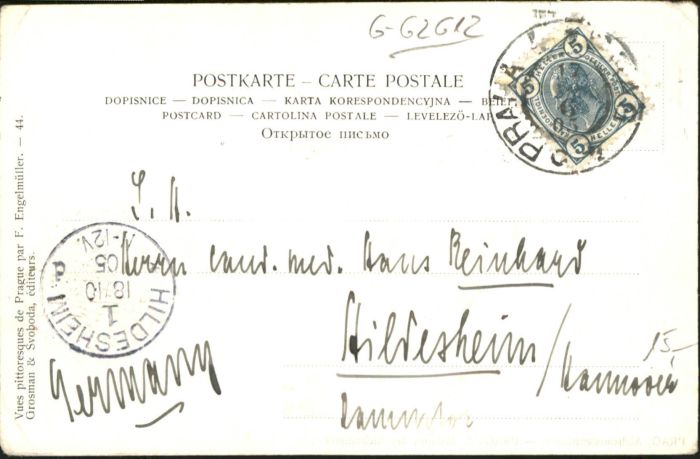 G-62612
POSTKARTE – CARTE POSTALE
DOPISNICE — DOPISNICA — KARTA KORESPONDENCYJNA —
POSTCARD — CARTOLINA POSTALE — LEVELEZŐ-LAP
Открытое письмо
PRAHA
5 5 5 5
HELLER
S. H.
Herrn cand. med. Hans Reinhard
Hildesheim / Hannover
15-
Germany
HILDESHEIM
1
18/10
05
11-12V.
Vues pittoresques de Prague par F. Engelmüller. — 44.
Grosman & Svoboda, éditeurs.